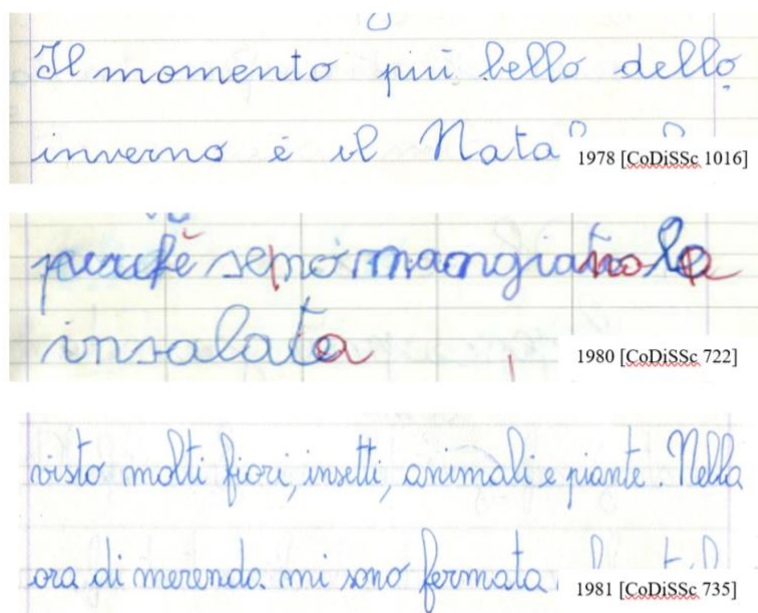 Il momento più bello dello
inverno è il
1978 [CoDiSSc 1016]
mangiano la
insalata
1980 [CoDiSSc 722]
visto molti fiori, insetti, animali e piante. Nella
ora di merenda mi sono fermata
1981 [CoDiSSc 735]